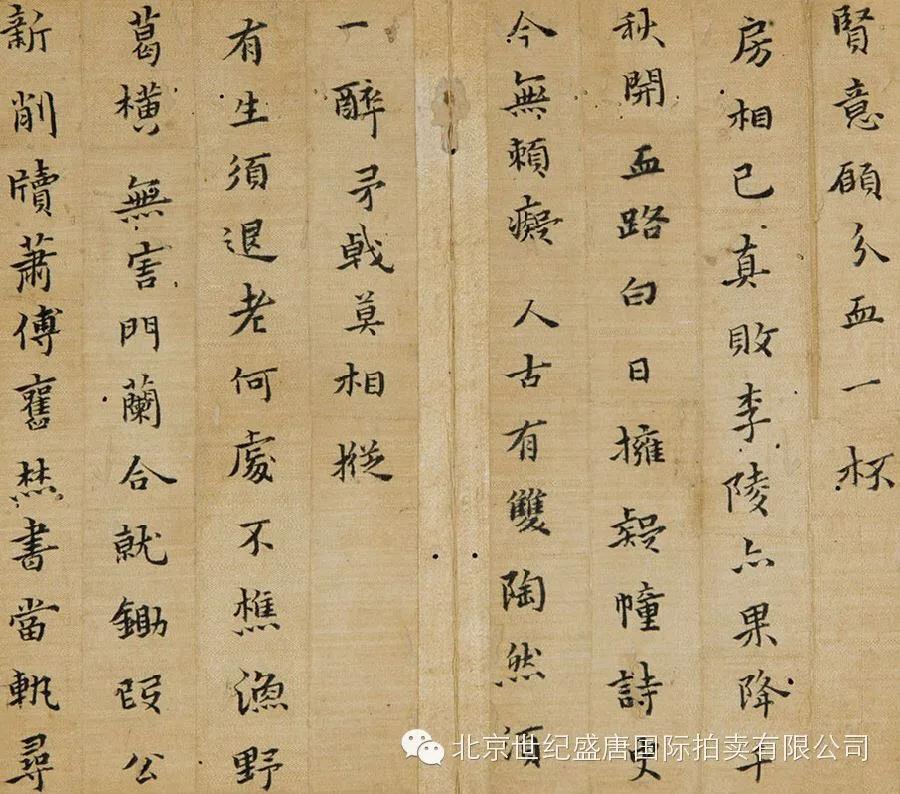 賢意願分血一杯
房相已真敗李陵亦果降千
秋開血路白日擁疑幢詩更
今無賴癡人古有雙陶然須
一醉矛戟莫相摐
有生須退老何處不樵漁野
葛橫無害門蘭合就鋤段公
新削牘蕭傅舊焚書當軌尋
北京世纪盛唐国际拍卖有限公司